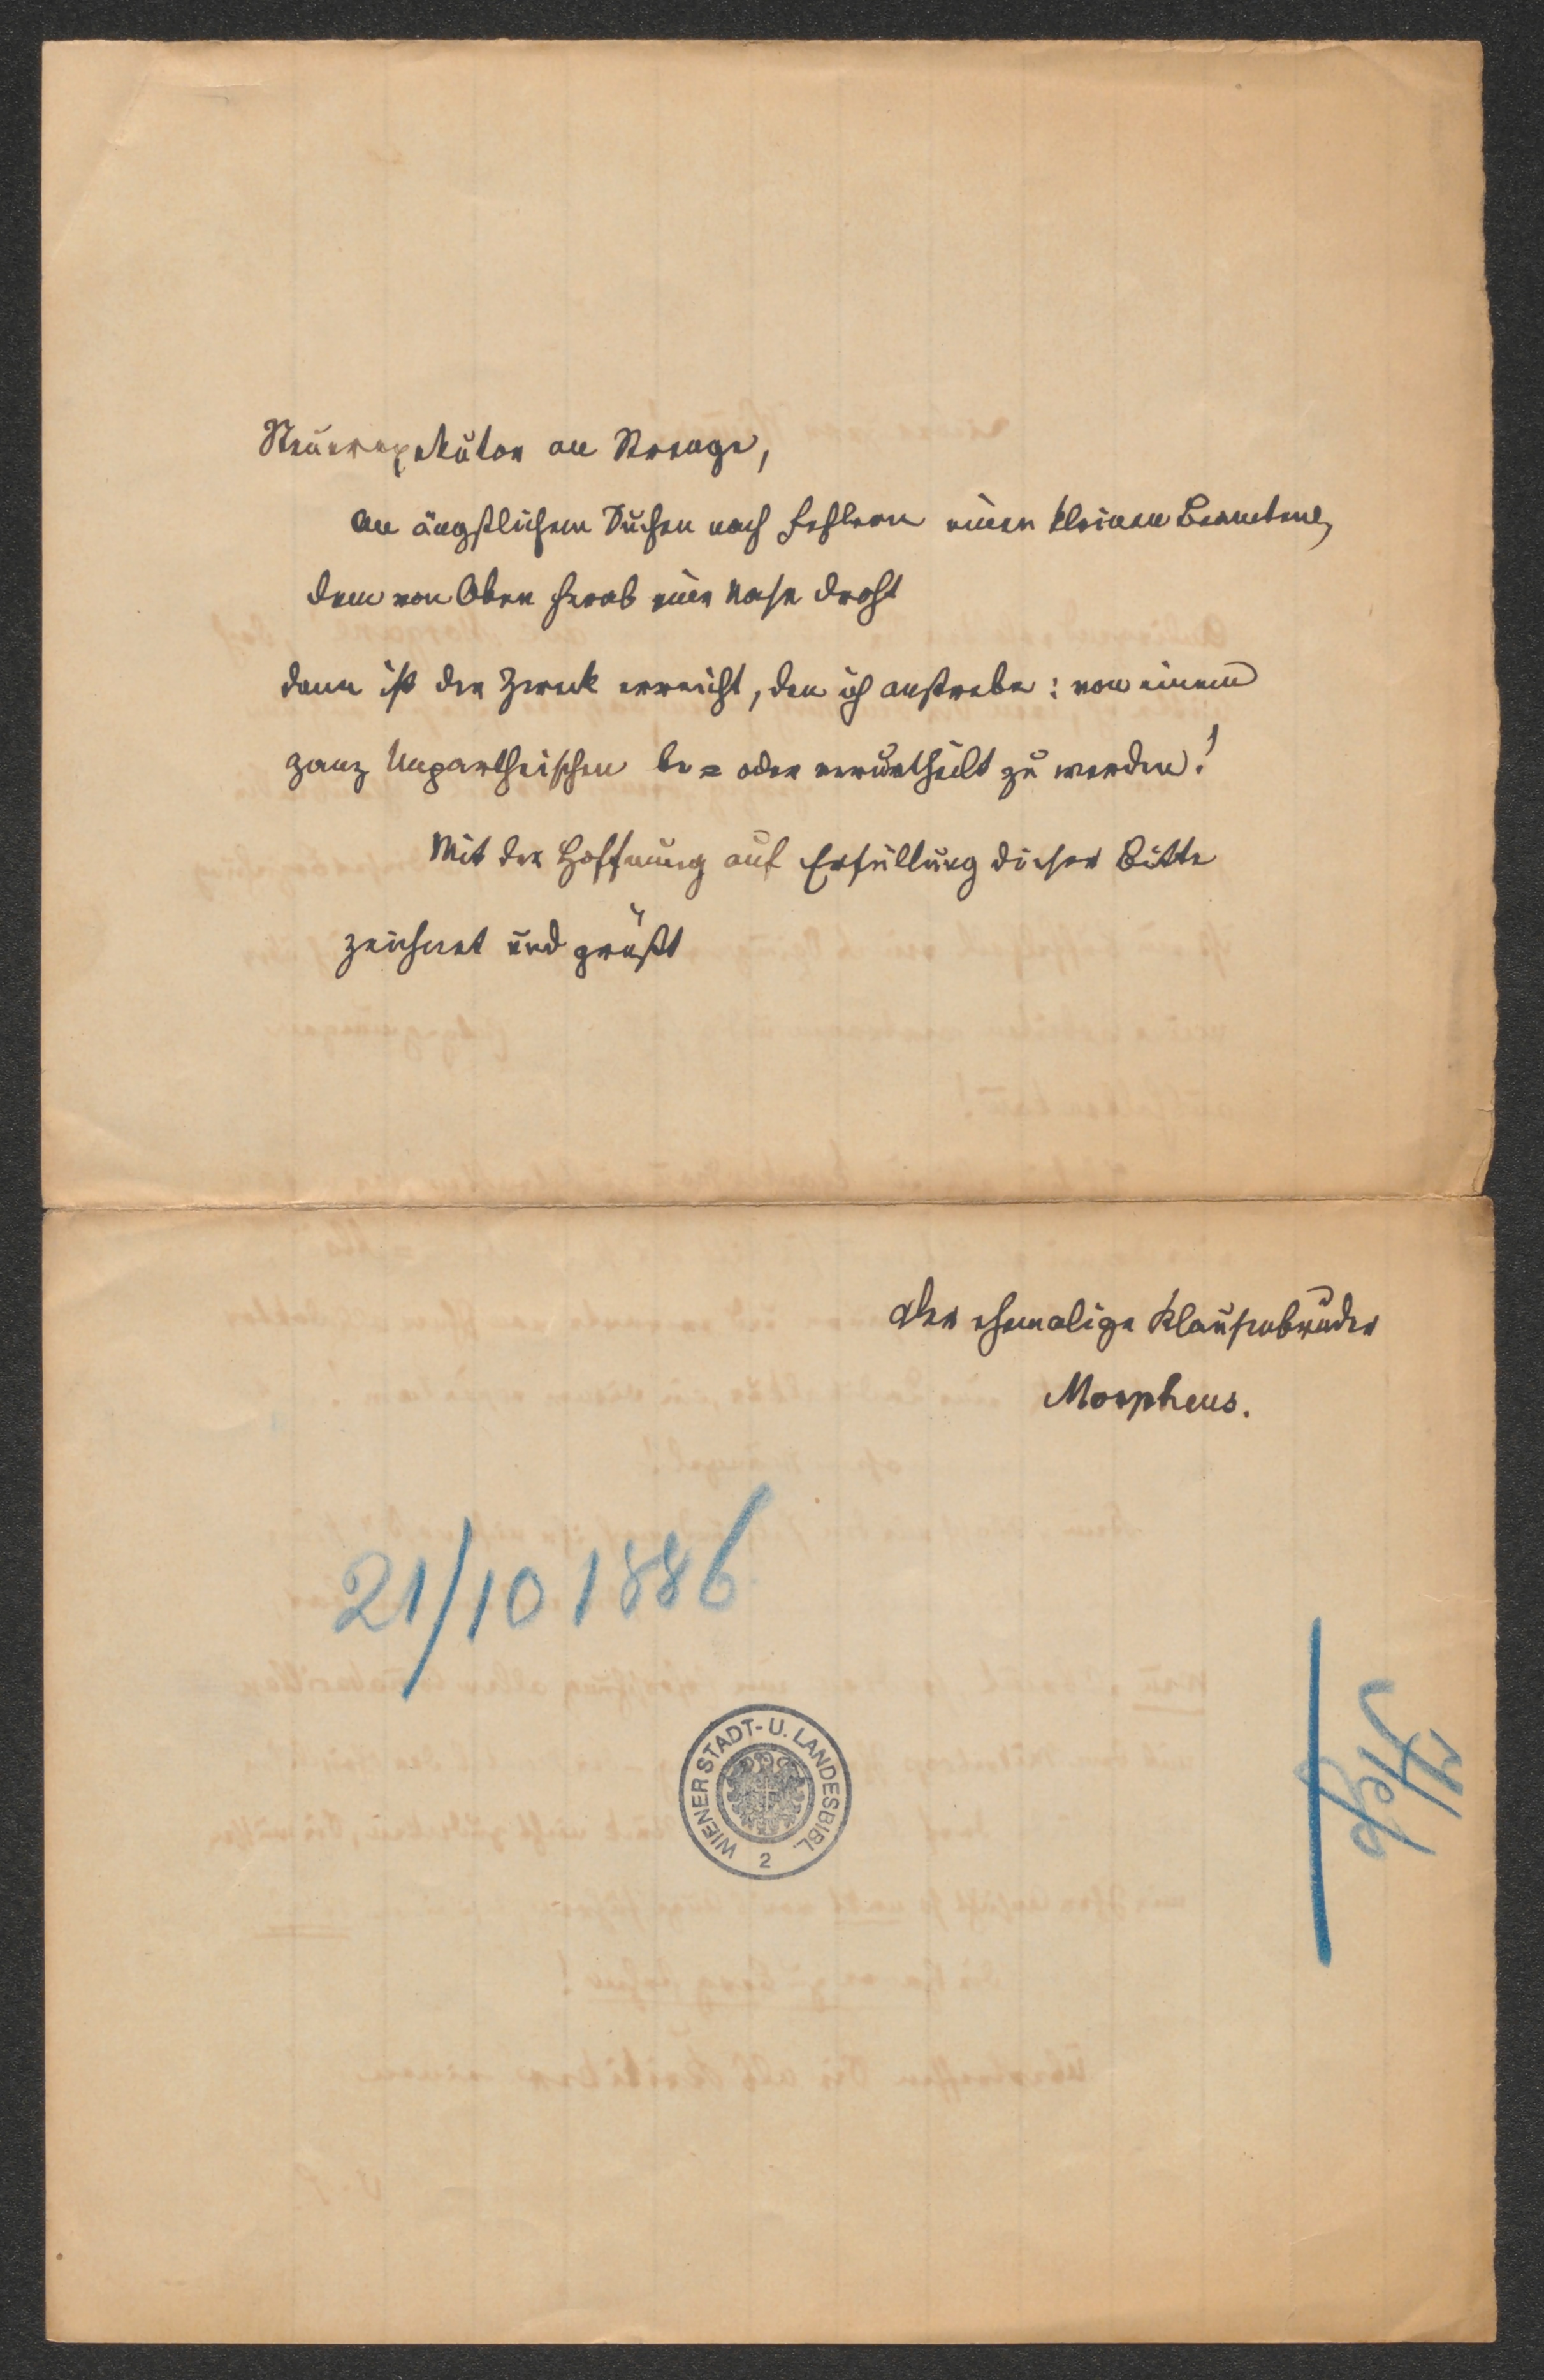 Steuerexekutor an Strenge,
an ängstlichem Suchen nach Fehlern einen kleinen Beamten,
dem von Oben herab eine Nase droht
dann ist der Zweck erreicht, den ich anstrebe: von einem
ganz Unpartheiischen be= oder verurtheilt zu werden!
Mit der Hoffnung auf Erfüllung dieser Bitte
zeichnet und grüßt
der ehemalige Klausenbruder
Morpheus.
21/10 1886
WIENER STADT- U. LANDESBIBL.
2